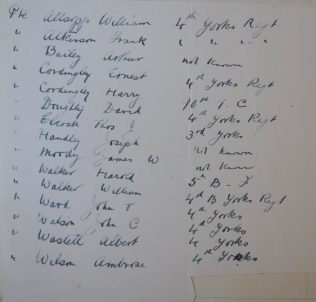 Pte Allsopp William 4th Yorks Regt
" Atkinson Frank " " " "
" Bailey Arthur not known
" Cordingley Ernest 4th Yorks Regt
" Cordingley Harry 10th T. C
" Doughty David 4th Yorks Regt
" Thos 3rd Yorks
" Handly Joseph not known
" Moody James W not known
" Walker Harold 5th B
" Walker William 4th B Yorks Regt
" Ward John T 4th Yorks
" Watson John C 4th Yorks
" Waslett Albert 4th Yorks
" Wilson Ambrose 4th Yorks